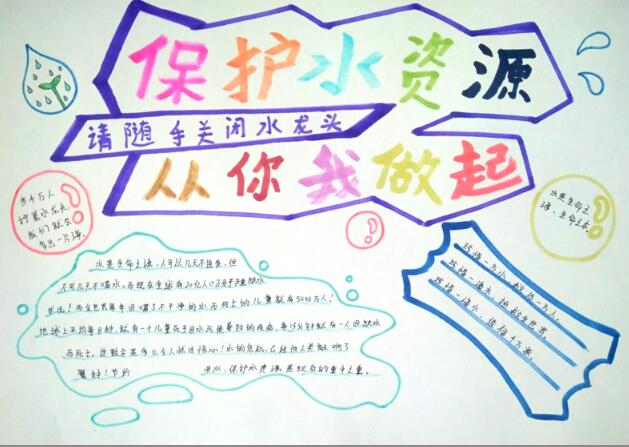 保护水资源
请随手关闭水龙头
从你我做起
当千万人
拧紧水龙头,
我们就会
多出一片海。
水是生命之
源、生命之本。
水是生命之源,人可以几天不进食,但
不可几天不喝水。而现在全球有20亿人口正处于严重缺水
状况!而全世界每年因喝了不干净的水而死去的儿童就有5000万人!
地球上平均每8秒,就有一个儿童死于因水污染导致的疾病,每15分钟就有一人因缺水
而死去。这数字是多么令人触目惊心!水的危机,已经向人类敲响了
警钟!节约
用水、保护水资源是现在的重中之重。
珍惜一方水,
珍惜一滴水,拯救全世界。
珍惜一滴水,